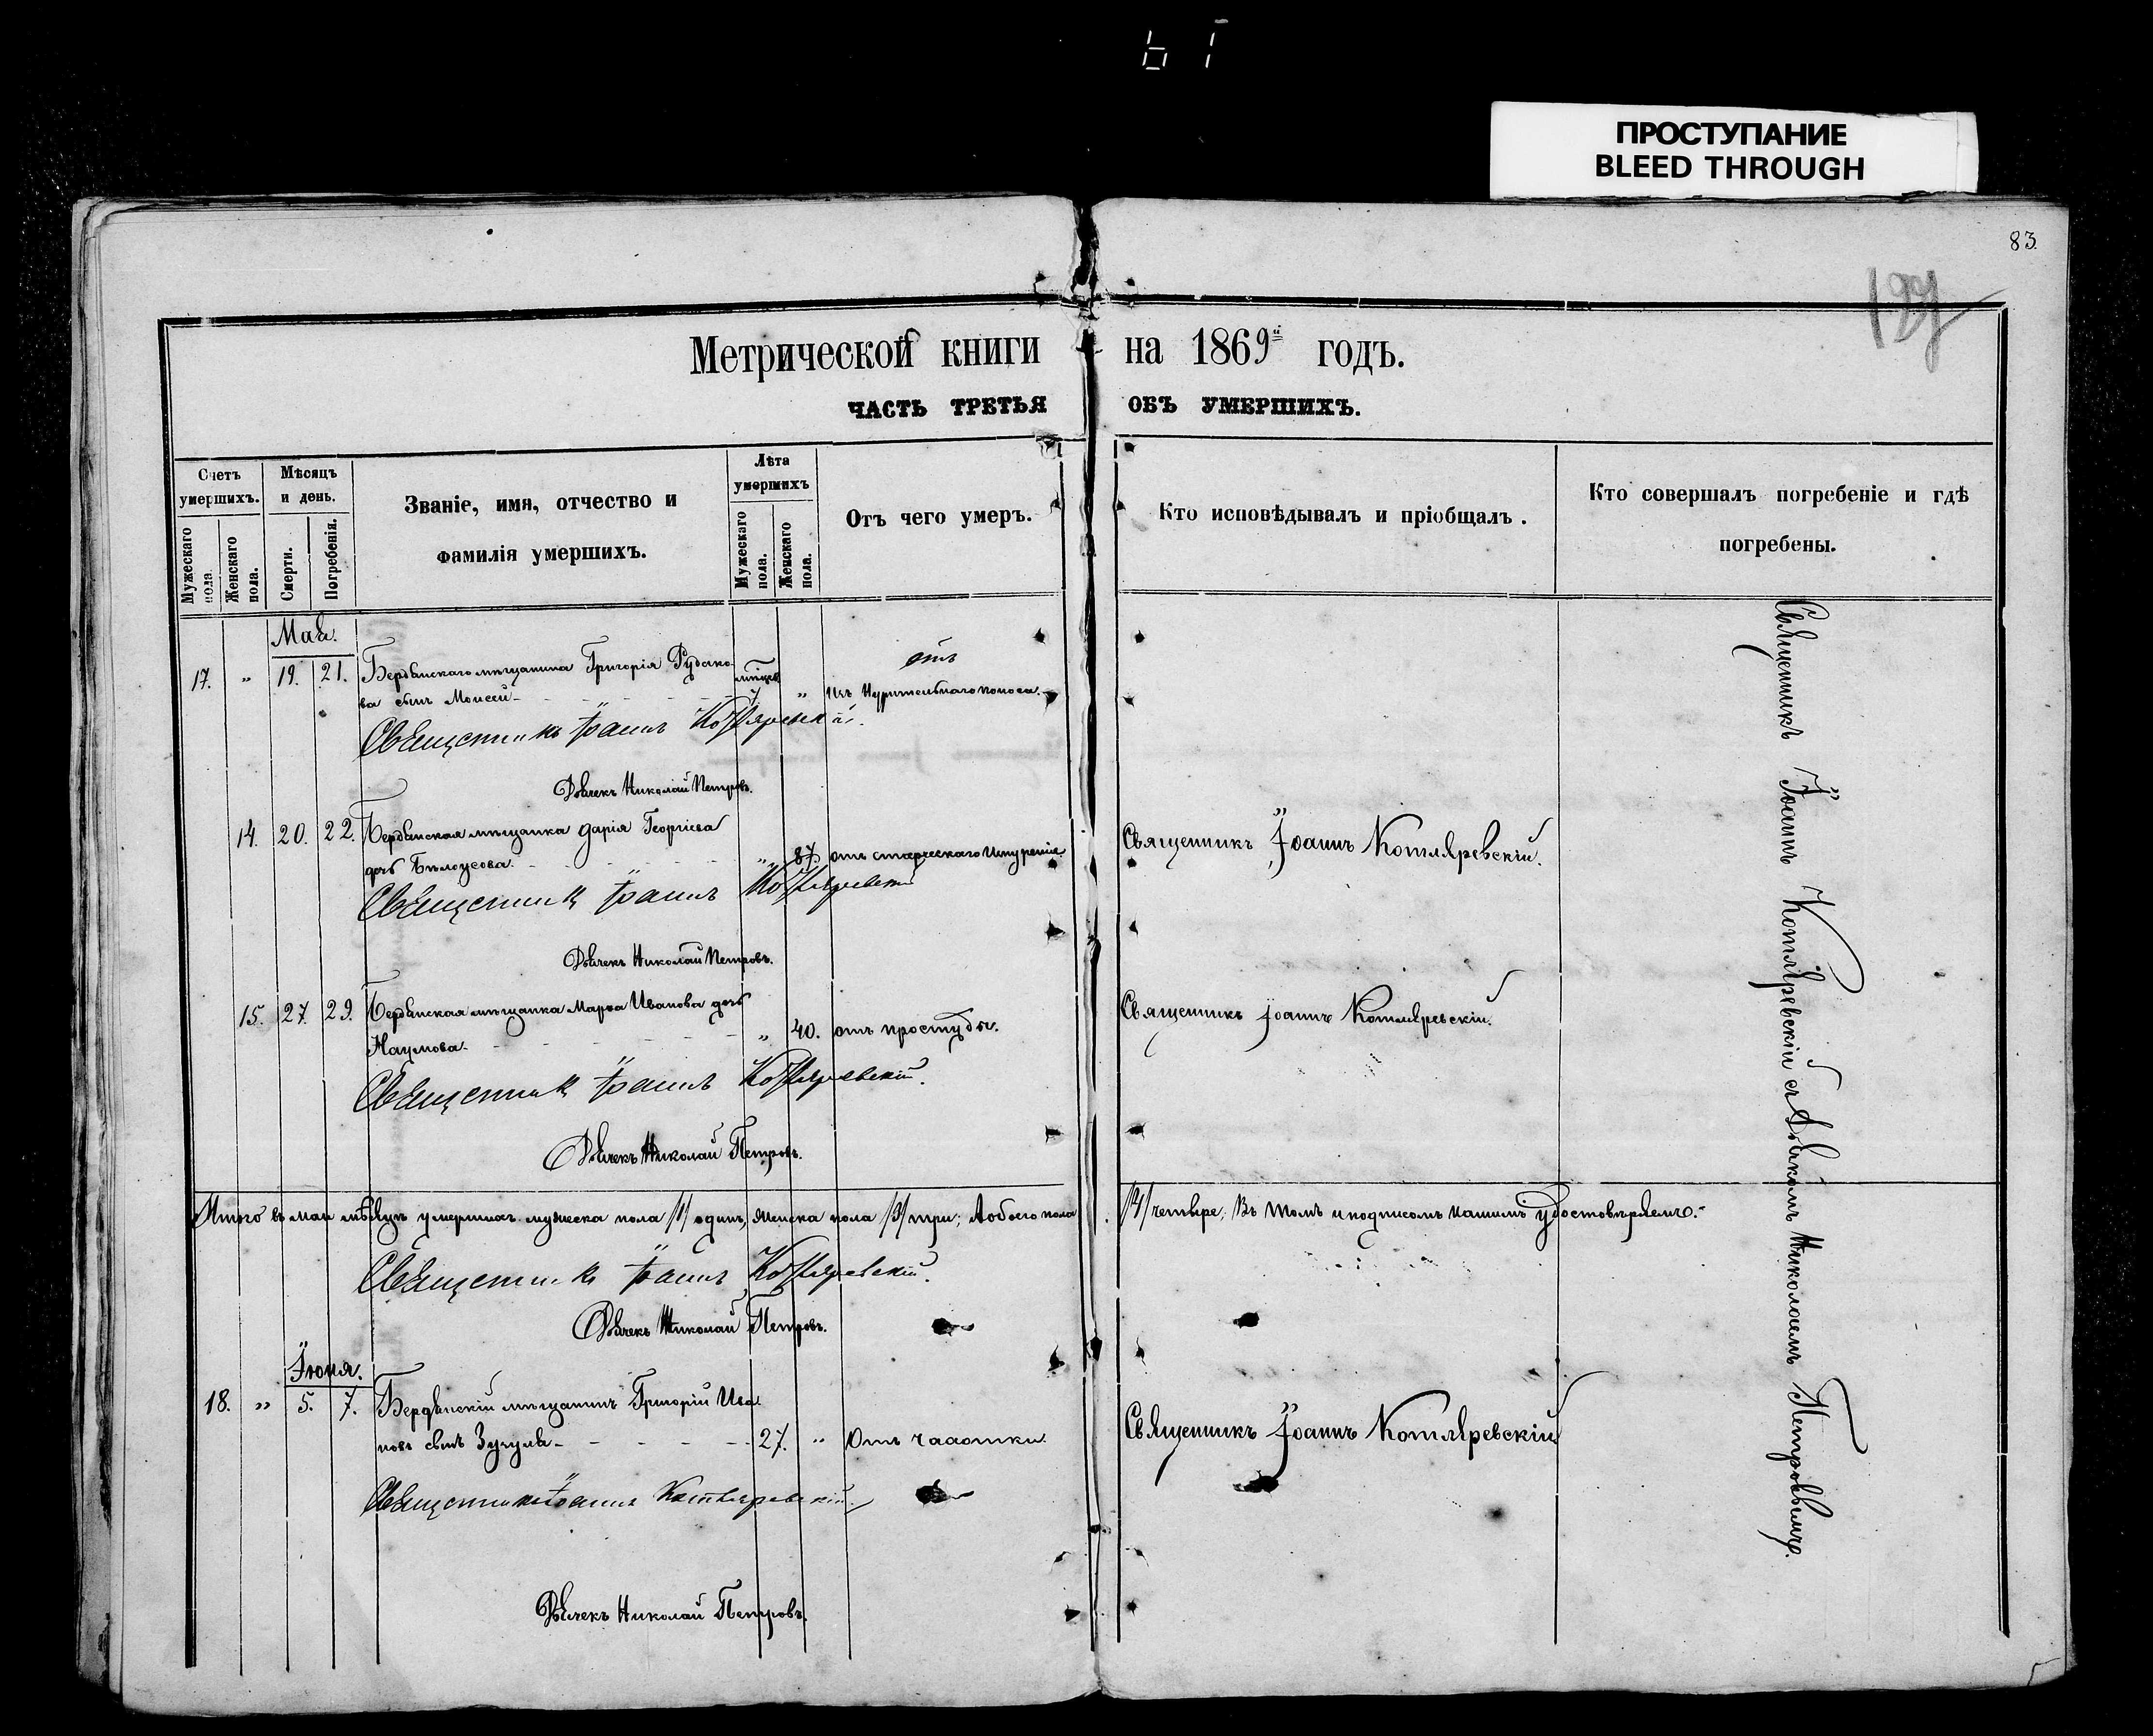 ПРОСТУПАНИЕ
BLEED THROUGH
83.
Метрической книги на 1869й годъ.
ЧАСТЬ ТРЕТЬЯ ОБЪ УМЕРШИХЪ.
Счетъ умершихъ.
Мужескаго пола.
Женскаго пола.
Мѣсяцъ и день.
Смерти.
Погребенія.
Званіе, имя, отчество и
фамилія умершихъ.
Лѣта умершихъ
Мужескаго пола.
Женскаго пола.
Отъ чего умеръ.
Кто исповѣдывалъ и пріобщалъ.
Кто совершалъ погребеніе и гдѣ
погребены.
Мая.
17. „ 19. 21. Бердянскаго мѣщанина Григорія Рудако-
ва сынъ Моисей „ отъ поноса.
Священникъ Іоаннъ Котляревскій.
Дьячекъ Николай Петровъ.
14. 20. 22. Бердянская мѣщанка Дарія Георгіева
дочь Бѣлоусова. „ 87. отъ старческаго
Священникъ Іоаннъ Котляревскій.
Священникъ Іоаннъ Котляревскій
Дьячекъ Николай Петровъ.
15. 27. 29. Бердянская мѣщанка Марѳа Иванова дочь
Наумова. „ 40. отъ простуды.
Священникъ Іоаннъ Котляревскій.
Священникъ Іоаннъ Котляревскій.
Дьячекъ Николай Петровъ.
Итого въ маи мѣсяцѣ умершихъ мужеска пола /1/ одинъ, женска пола /3/ три; А обоего пола
/4/ четыре; Въ томъ и подписомъ нашимъ удостовѣряемъ.
Священникъ Іоаннъ Котляревскій.
Дьячекъ Николай Петровъ.
Іюня.
18. „ 5. 7. Бердянскій мѣщанинъ Григорій Ива-
новъ сынъ Зугуля 27. „ Отъ чахотки.
Священникъ Іоаннъ Котляревскій
Священникъ Іоаннъ Котляревскій.
Дьячекъ Николай Петровъ.
Священникъ Іоаннъ Котляревскій съ Дьячкомъ Николаемъ Петровымъ.